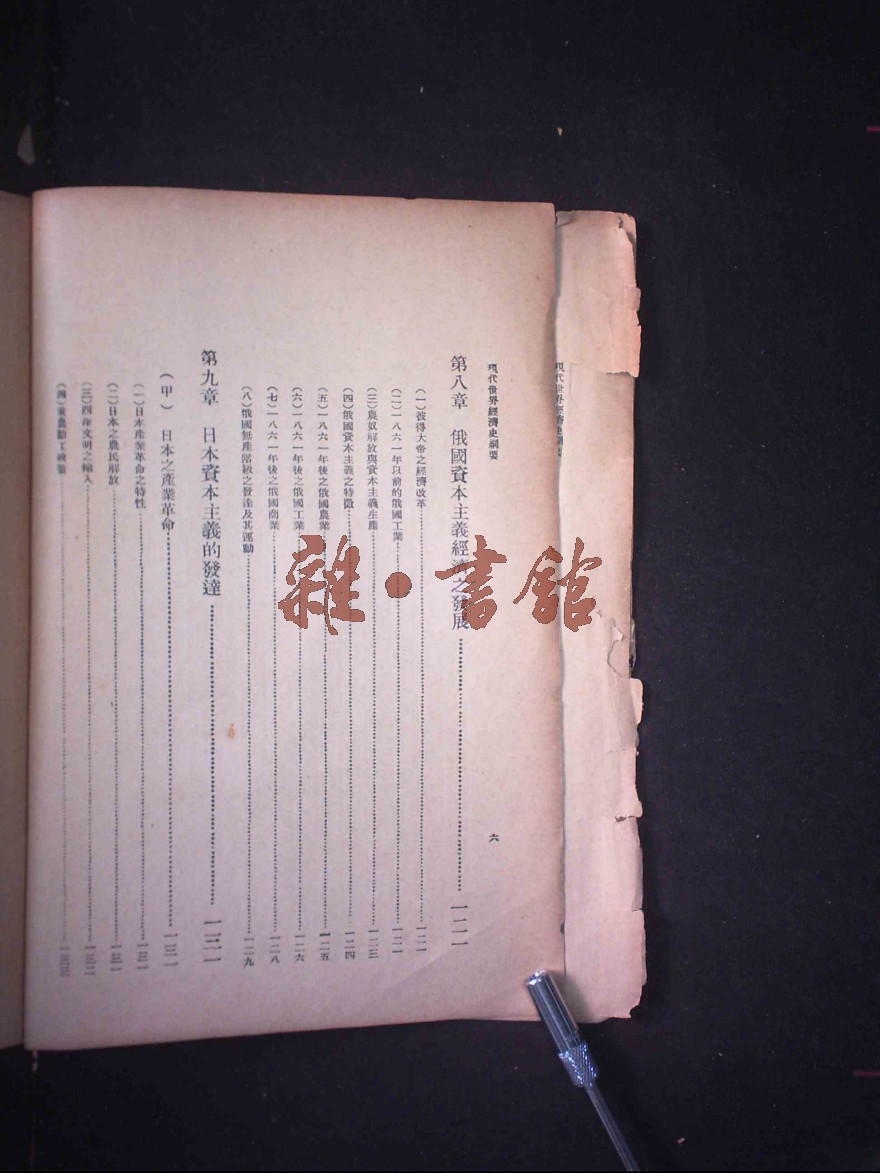 現代世界經濟史綱要
現代世界經濟史綱要
六
第八章 俄國資本主義經濟之發展 一二一
(一)彼得大帝之經濟改革 一二一
(二)一八六一年以前的俄國工業 一二一
(三)農奴解放與資本主義生產 一二三
(四)俄國資本主義之特徵 一二四
(五)一八六一年後之俄國農業 一二五
(六)一八六一年後之俄國工業 一二六
(七)一八六一年後之俄國商業 一二八
(八)俄國無產階級之發達及其運動 一二九
第九章 日本資本主義的發達 一三一
(甲) 日本之產業革命 一三一
(一)日本產業革命之特性 一三一
(二)日本之農民解放
(三)西洋文明之輸入
(四)重農勸工政策
雜•書館